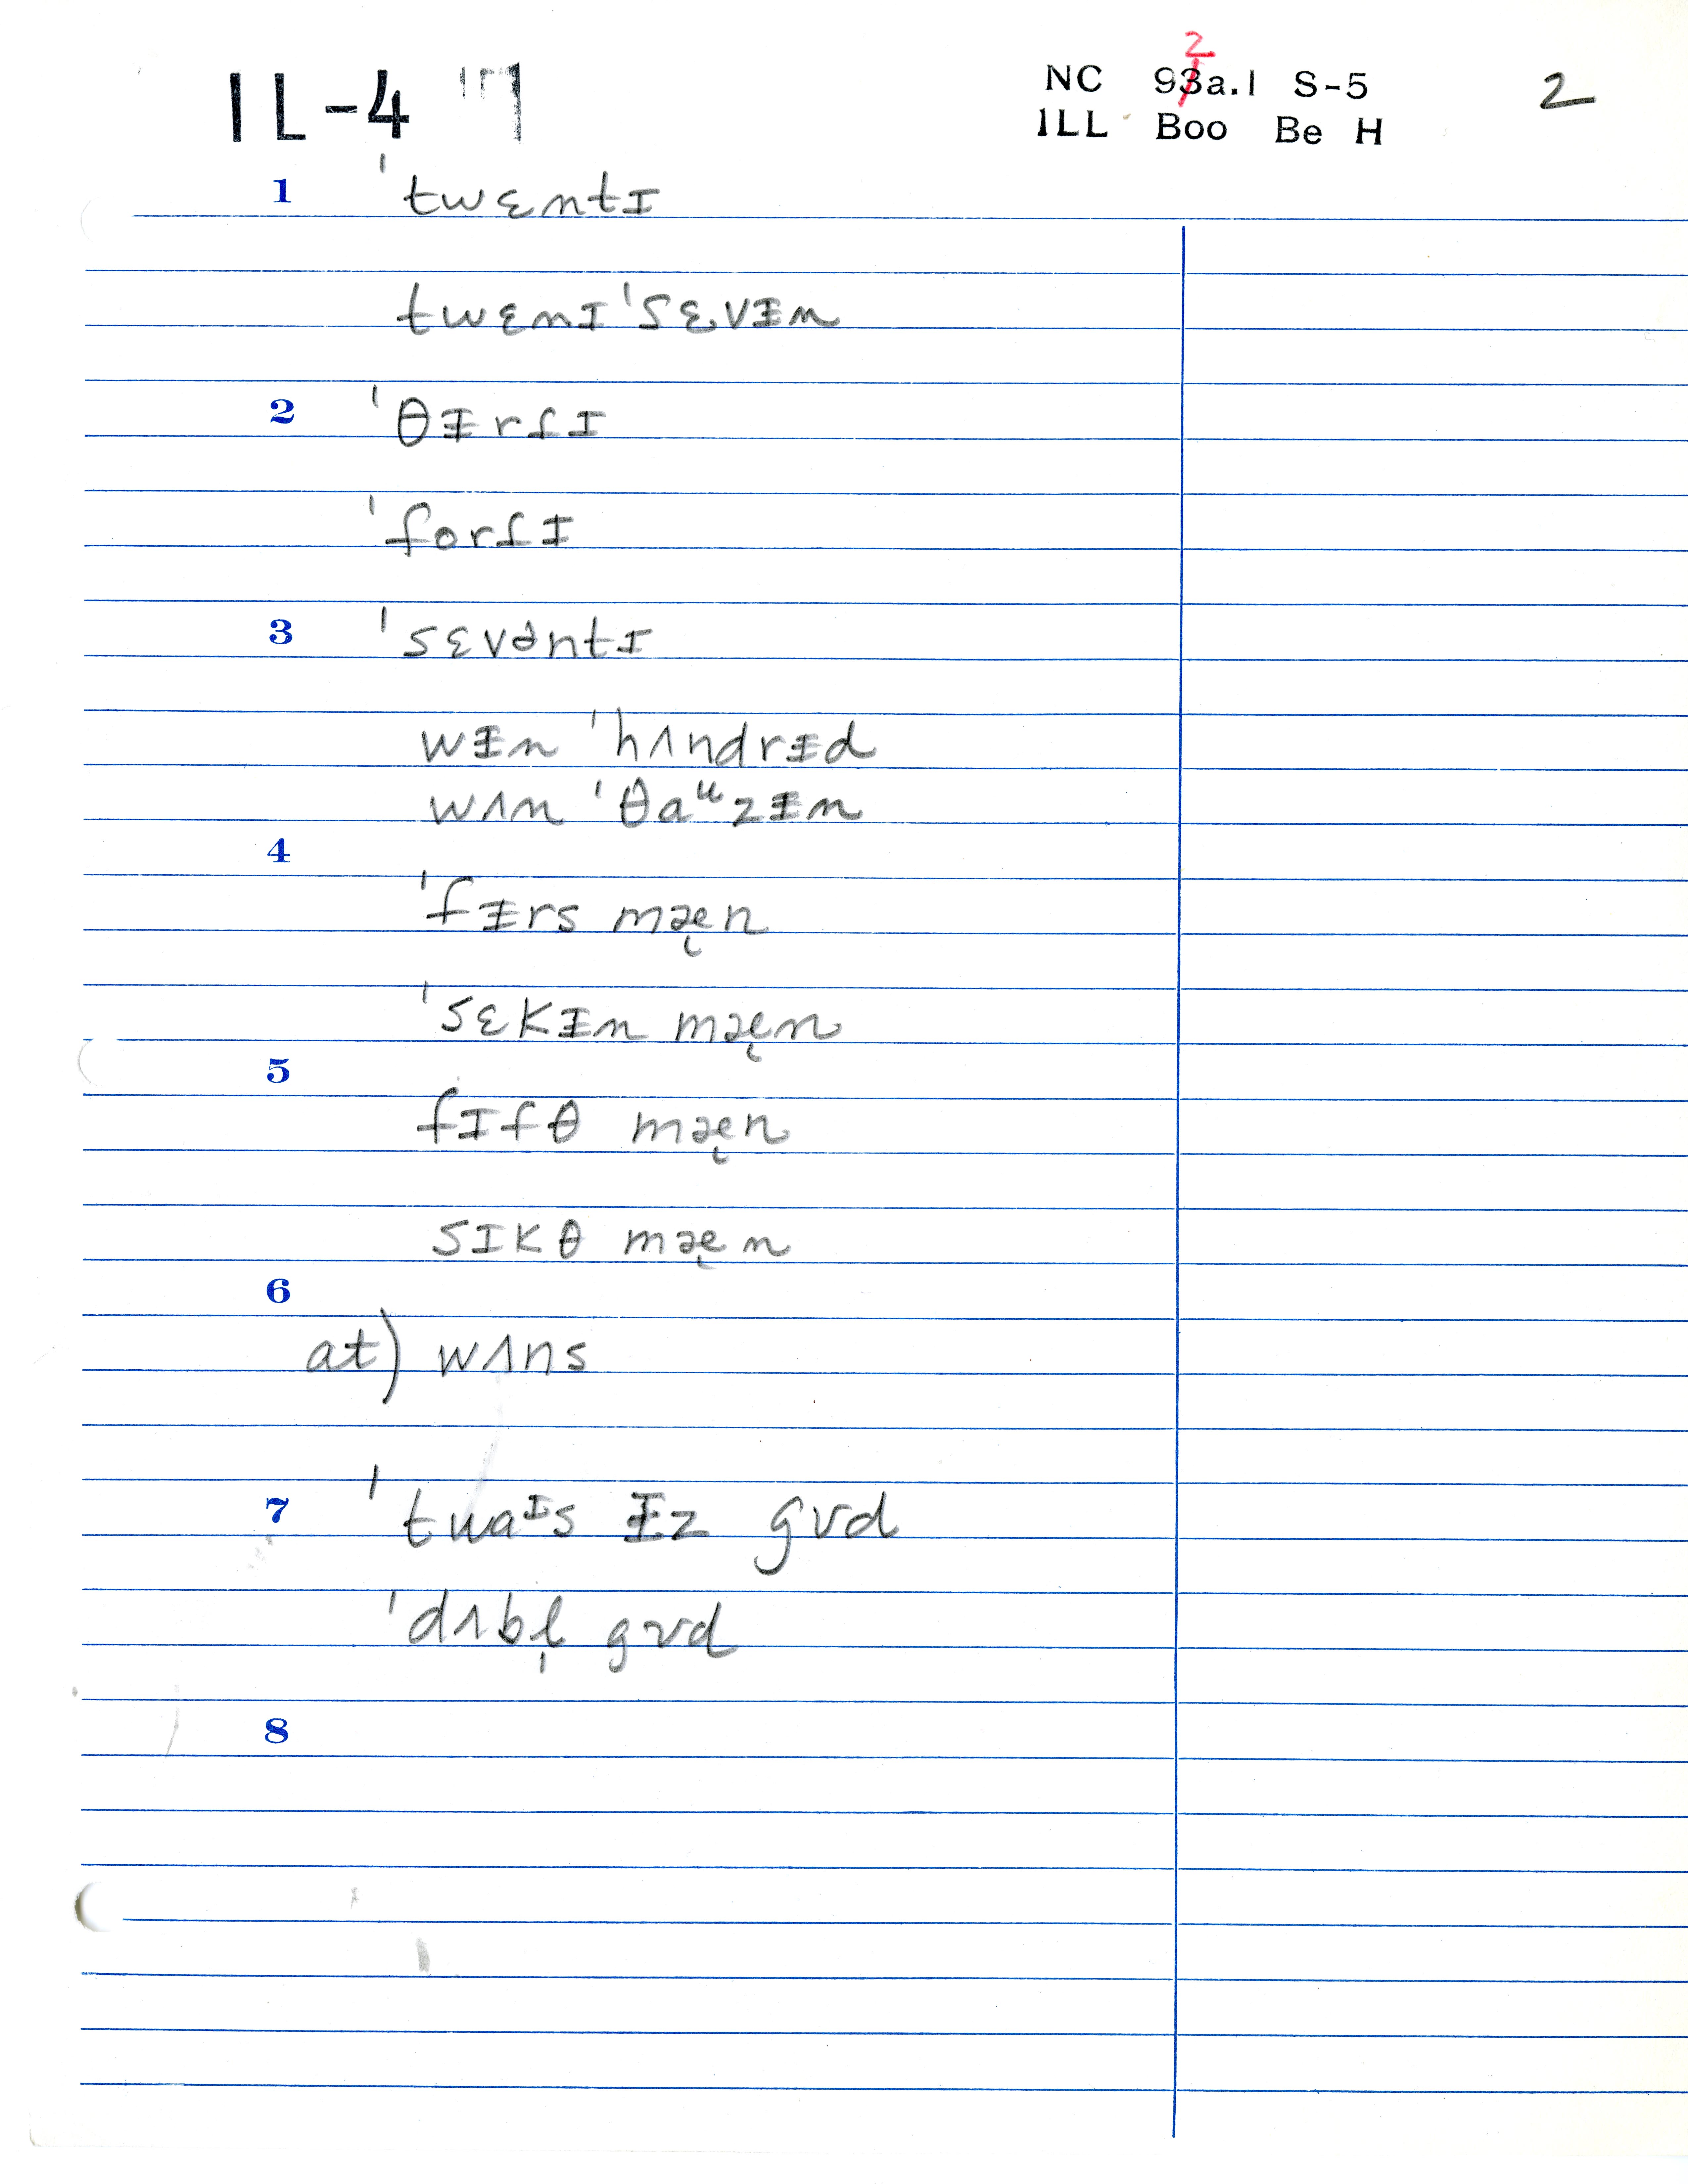 IL-4
NC 93a.1 S-5
2
ILL Boo Be H
2
1 ˈtwɛntɪ
twɛnɪˈsɛvᵻn
2 ˈθᵻrɾɪ
ˈforɾɪ
3 ˈsɛvəntɪ
wᵻn ˈhʌndrᵻd
wʌn ˈθaᵘzᵻn
4
ˈfᵻrs mæ̨n
ˈsɛkᵻn mæ̨n
5
fɪfθ mæ̨n
sɪkθ mæ̨n
6
at) wʌns
7 ˈtwaᶦs ᵻz gʊd
ˈdʌbl̩ gʊd
8